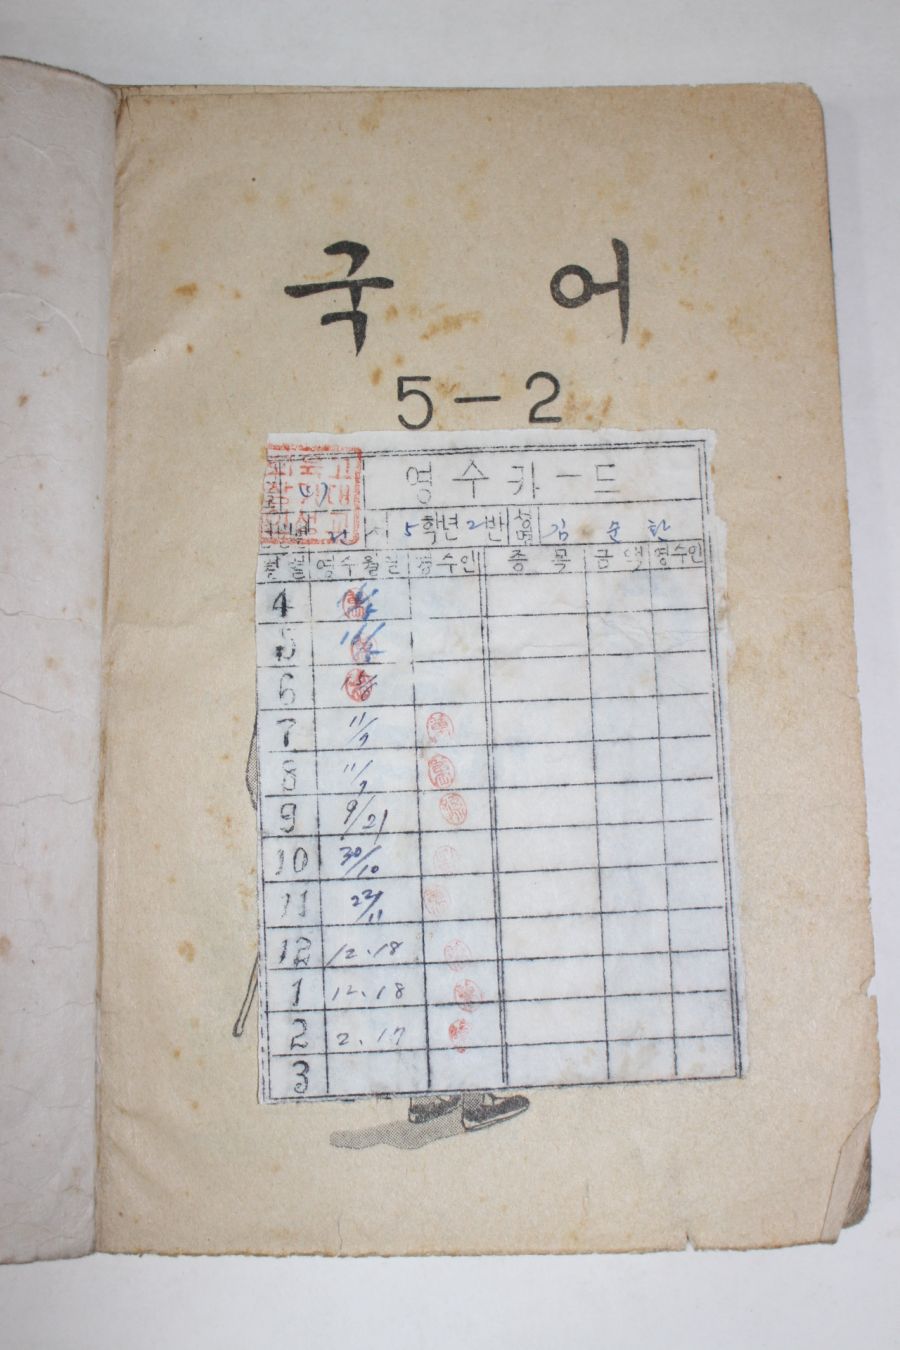 국 어
5-2
영수카-드
5학년 2반 성명 김순한
영수월일 영수인 종목 금액 영수인
4
5
6
7 11/7
8 11/7
9 9/21
10 30/10
11 22/11
12 12.18
1 12.18
2 2.17
3